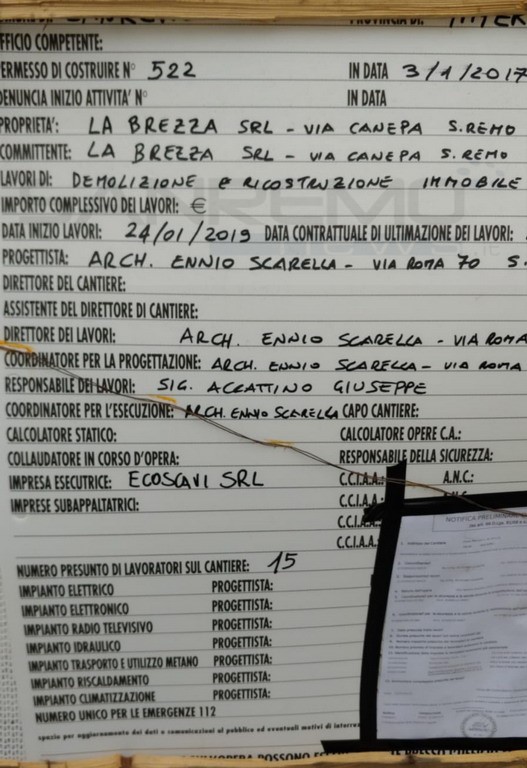 PROVINCIA DI:
FFICIO COMPETENTE:
ERMESSO DI COSTRUIRE N° 522 IN DATA 3/1/2017
DENUNCIA INIZIO ATTIVITA' N° IN DATA
PROPRIETA': LA BREZZA SRL - VIA CANEPA S.REMO
COMMITTENTE: LA BREZZA SRL - VIA CANEPA S. REMO
LAVORI DI: DEMOLIZIONE E RICOSTRUZIONE IMMOBILE
IMPORTO COMPLESSIVO DEI LAVORI: €
DATA INIZIO LAVORI: 24/01/2019 DATA CONTRATTUALE DI ULTIMAZIONE DEI LAVORI:
PROGETTISTA: ARCH. ENNIO SCARELLA - VIA ROMA 70 S.
DIRETTORE DEL CANTIERE:
ASSISTENTE DEL DIRETTORE DI CANTIERE:
DIRETTORE DEI LAVORI: ARCH. ENNIO SCARELLA - VIA ROMA
COORDINATORE PER LA PROGETTAZIONE: ARCH. ENNIO SCARELLA - VIA ROMA
RESPONSABILE DEI LAVORI: SIG. ACCATTINO GIUSEPPE
COORDINATORE PER L'ESECUZIONE: ARCH. ENNIO SCARELLA CAPO CANTIERE:
CALCOLATORE STATICO: CALCOLATORE OPERE C.A.:
COLLAUDATORE IN CORSO D'OPERA: RESPONSABILE DELLA SICUREZZA:
IMPRESA ESECUTRICE: ECOSCAVI SRL C.C.I.A.A.: A.N.C.:
IMPRESE SUBAPPALTATRICI: C.C.I.A.A.:
C.C.I.A.A.:
C.C.I.A.A.:
NOTIFICA PRELIMINARE
NUMERO PRESUNTO DI LAVORATORI SUL CANTIERE: 15
IMPIANTO ELETTRICO PROGETTISTA:
IMPIANTO ELETTRONICO PROGETTISTA:
IMPIANTO RADIO TELEVISIVO PROGETTISTA:
IMPIANTO IDRAULICO PROGETTISTA:
IMPIANTO TRASPORTO E UTILIZZO METANO PROGETTISTA:
IMPIANTO RISCALDAMENTO PROGETTISTA:
IMPIANTO CLIMATIZZAZIONE PROGETTISTA:
NUMERO UNICO PER LE EMERGENZE 112
spazio per aggiornamento dei dati o comunicazioni al pubblico ed eventuali motivi di interruz